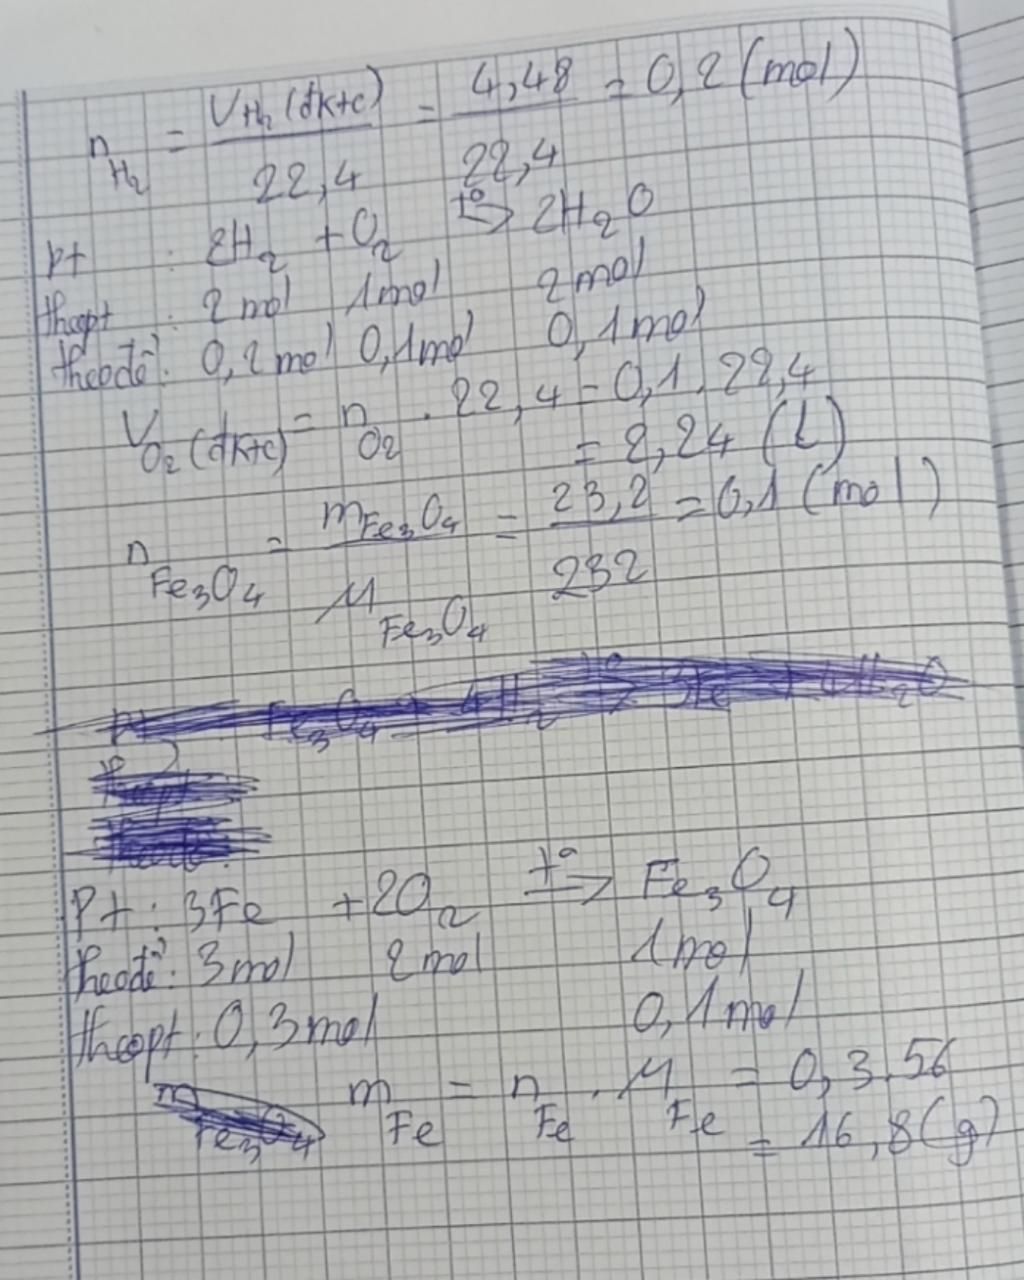 n H₂ = V H₂ (đktc) / 22,4 = 4,48 / 22,4 = 0,2 (mol)
pt : 2H₂ + O₂ t° → 2H₂O
theopt : 2 mol 1mol 2 mol
theođề : 0,2 mol 0,1mol 0,1mol
V O₂ (đktc) = n O₂ . 22,4 = 0,1 . 22,4
= 2,24 (L)
n Fe₃O₄ = m Fe₃O₄ / M Fe₃O₄ = 23,2 / 232 = 0,1 (mol)
Pt : 3Fe + 2O₂ t° → Fe₃O₄
theođề : 3mol 2mol 1mol
theopt : 0,3mol 0,1mol
m Fe = n Fe . M Fe = 0,3.56
= 16,8 (g)